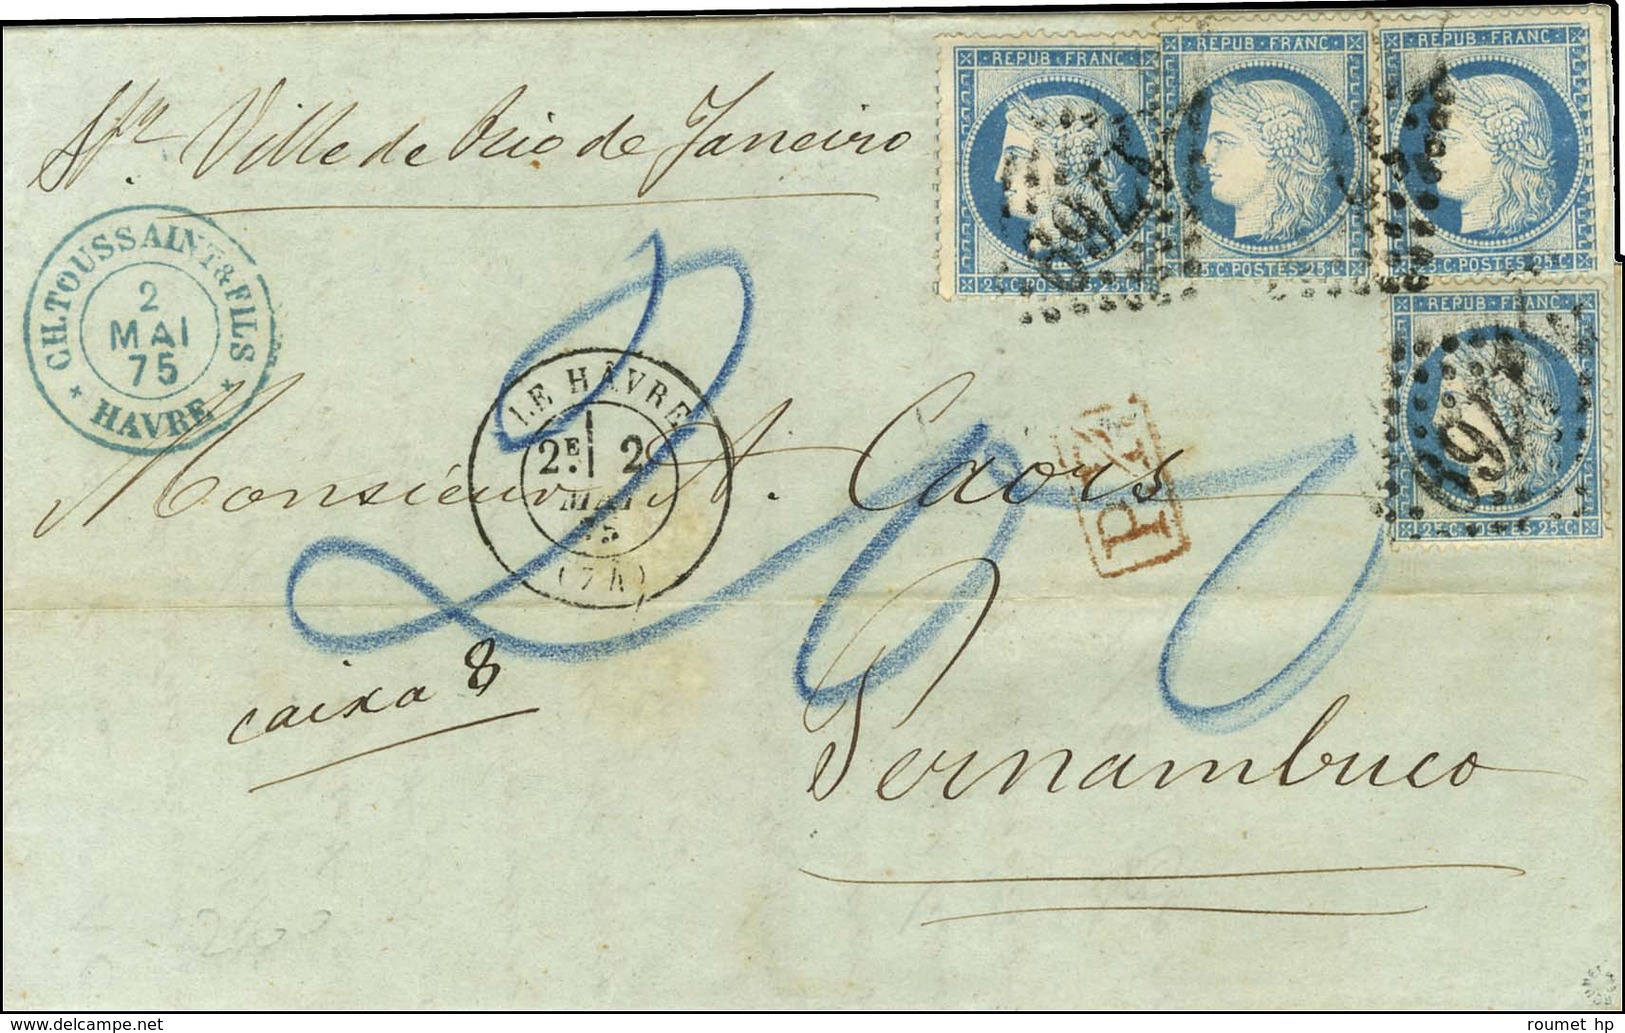 Str. Ville de Rio de Janeiro
REPUB·FRANC
25 C·POSTES·25 C
REPUB·FRANC
25 C·POSTES·25 C
REPUB·FRANC
25 C·POSTES·25 C
REPUB·FRANC
25 C·POSTES·25 C
1769
1769
CH. TOUSSAINT & FILS
2
MAI
75
* HAVRE *
LE HÂVRE
2E 2
MAI
75
(74)
P.P.
Monsieur A. Caors
caixa 8
Pernambuco
roumet hp